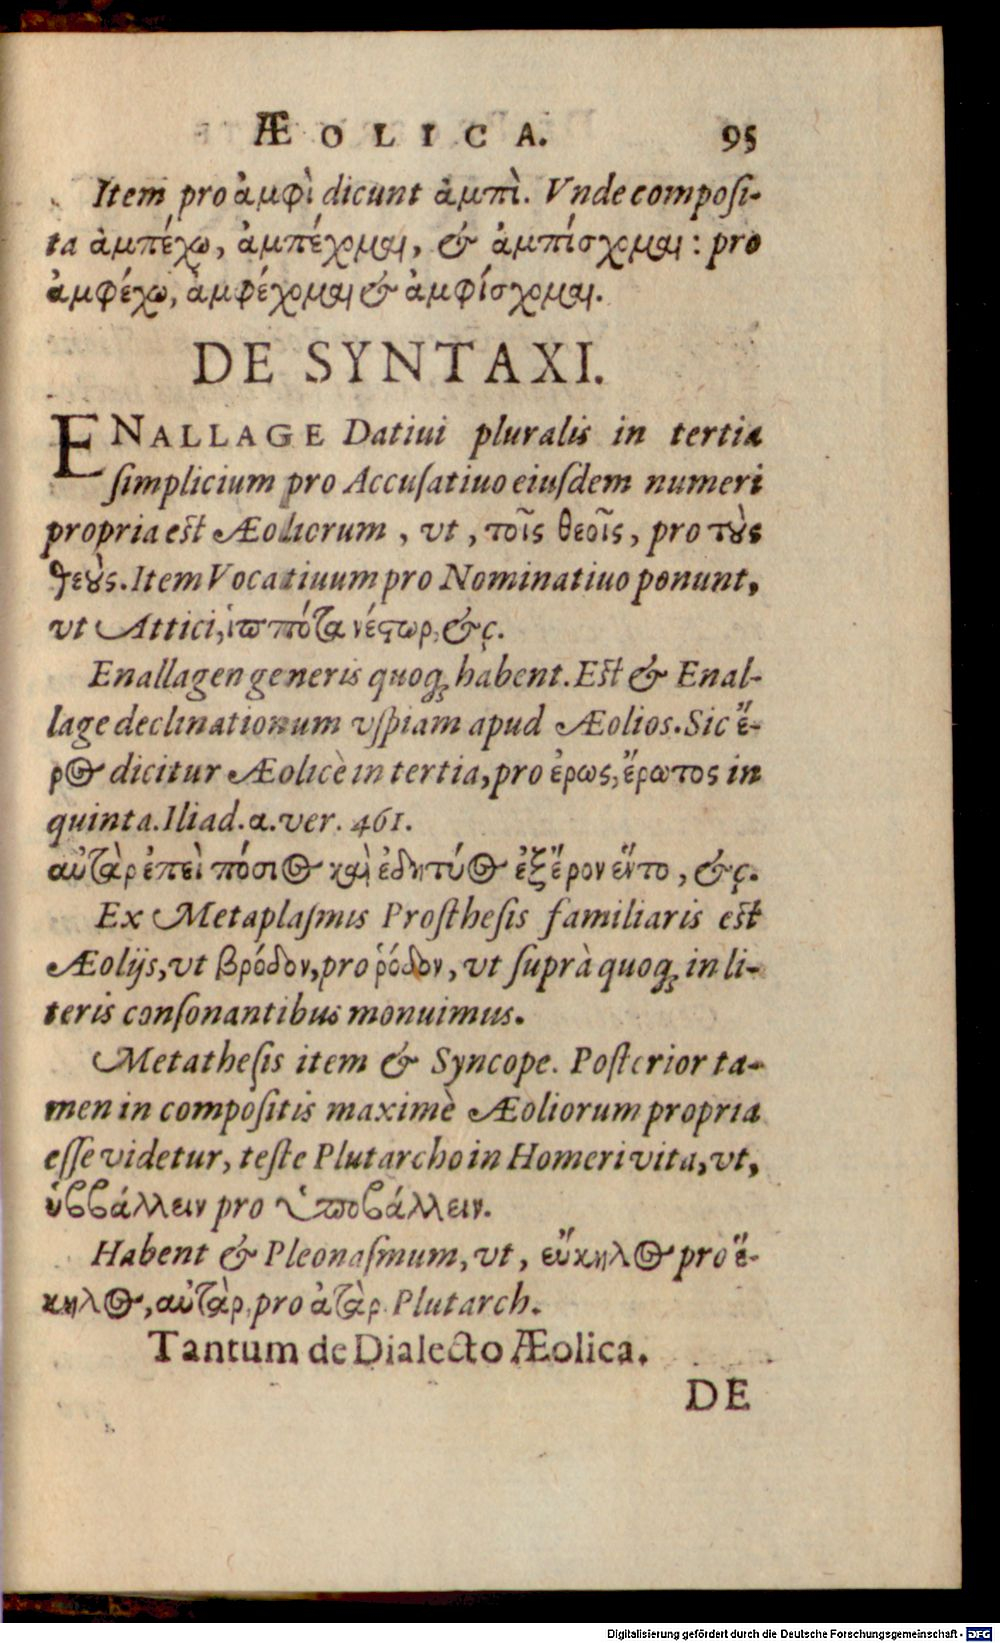 ÆOLICA. 95
Item pro ἀμφὶ dicunt ἀμπὶ. Vnde composi-
ta ἀμπέχω, ἀμπέχομαι, & ἀμπίσχομαι: pro
ἀμφέχω, ἀμφέχομαι & ἀμφίσχομαι.
DE SYNTAXI.
ENALLAGE Datiui pluralis in tertia
ſimplicium pro Accuſatiuo eiuſdem numeri
propria eſt Æoliorum, vt, τοῖς θεοῖς, pro τοὺς
θεοὺς. Item Vocatiuum pro Nominatiuo ponunt,
vt Attici, ἱππότα νέστωρ, &c.
Enallagen generis quoq; habent. Eſt & Enal-
lage declinationum vſpiam apud Æolios. Sic ἔ-
ρος dicitur Æolicè in tertia, pro ἐρως, ἔρωτος in
quinta. Iliad. α. ver. 461.
αὐτὰρ ἐπεὶ πόσιος καὶ ἐδητύος ἐξ ἔρον ἕντο, &c.
Ex Metaplaſmis Proſtheſis familiaris eſt
Æolijs, vt βρόδον, pro ῥόδον, vt ſuprà quoq; in li-
teris conſonantibus monuimus.
Metatheſis item & Syncope. Poſterior ta-
men in compoſitis maximè Æoliorum propria
eſſe videtur, teſte Plutarcho in Homeri vita, vt,
ὑββάλλειν pro ὑποβάλλειν.
Habent & Pleonaſmum, vt, εὔκηλος pro ἔ-
κηλος, αὐτὰρ, pro ἀτὰρ. Plutarch.
Tantum de Dialecto Æolica.
DE
Digitalisierung gefördert durch die Deutsche Forschungsgemeinschaft - DFG